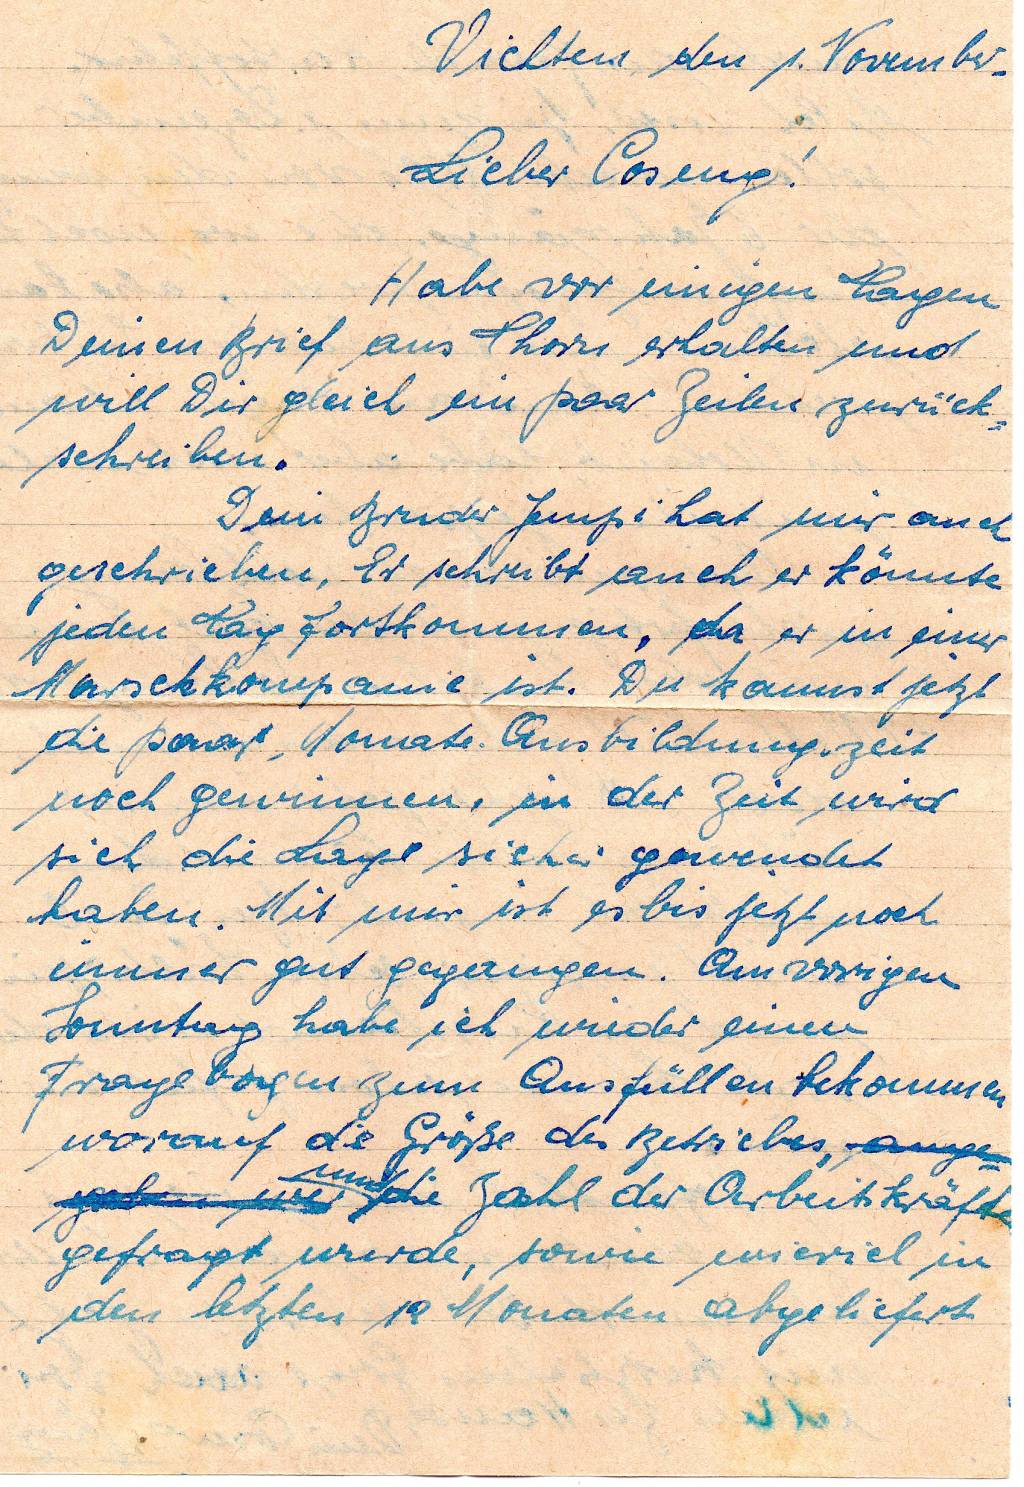 Vichten den 1. November.
Lieber Coseng!
Habe vor einigen Tagen
Deinen Brief aus Thorn erhalten und
will Dir gleich ein paar Zeilen zurück=
schreiben.
Dein Bruder Jempi hat mir auch
geschrieben, Er schreibt auch er könnte
jeden Tag fortkommen, da er in einer
Marschkompanie ist. Du kannst jetzt
die paar, Monate. Ausbildungszeit
noch gewinnen, in der Zeit wird
sich die Lage sicher gewendet
haben. Mit mir ist es bis jetzt noch
immer gut gegangen. Am vorigen
Sonntag habe ich wieder einen
Fragebogen zum Ausfüllen bekommen
worauf die Größe des Betriebes, ange=
geben und die Zahl der Arbeitskräfte
gefragt wurde, sowie wieviel in
den letzten 12 Monaten abgeliefert